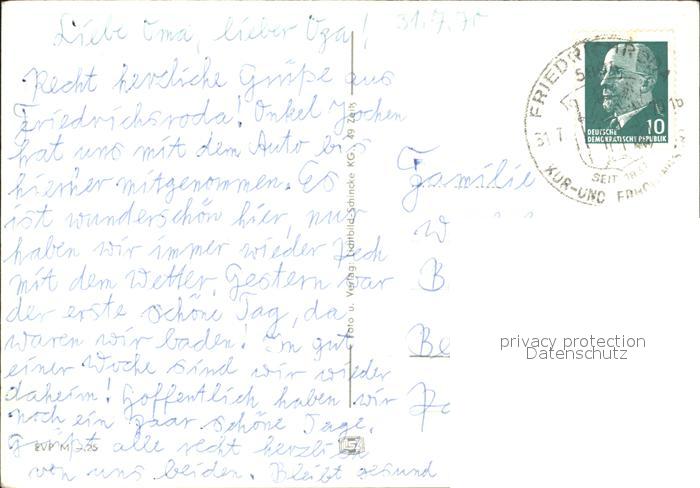 31.7.70
Liebe Oma, lieber Opa!
Recht herzliche Grüße aus
Friedrichsroda! Onkel Jochen
hat uns mit dem Auto bis
hierher mitgenommen. Es
ist wunderschön hier, nur
haben wir immer wieder Pech
mit dem Wetter. Gestern war
der erste schöne Tag, da
waren wir baden! In gut
einer Woche sind wir wieder
daheim! Hoffentlich haben wir
noch ein paar schöne Tage.
Grüßt alle recht herzlich
von uns beiden. Bleibt gesund
Foto u. Verlag: Lichtbild-Schincke KG, 49 Zeitz
Familie
W
B
Be
DEUTSCHE
DEMOKRATISCHE REPUBLIK
10
31.7
SEIT
KUR-UND
privacy protection
Datenschutz